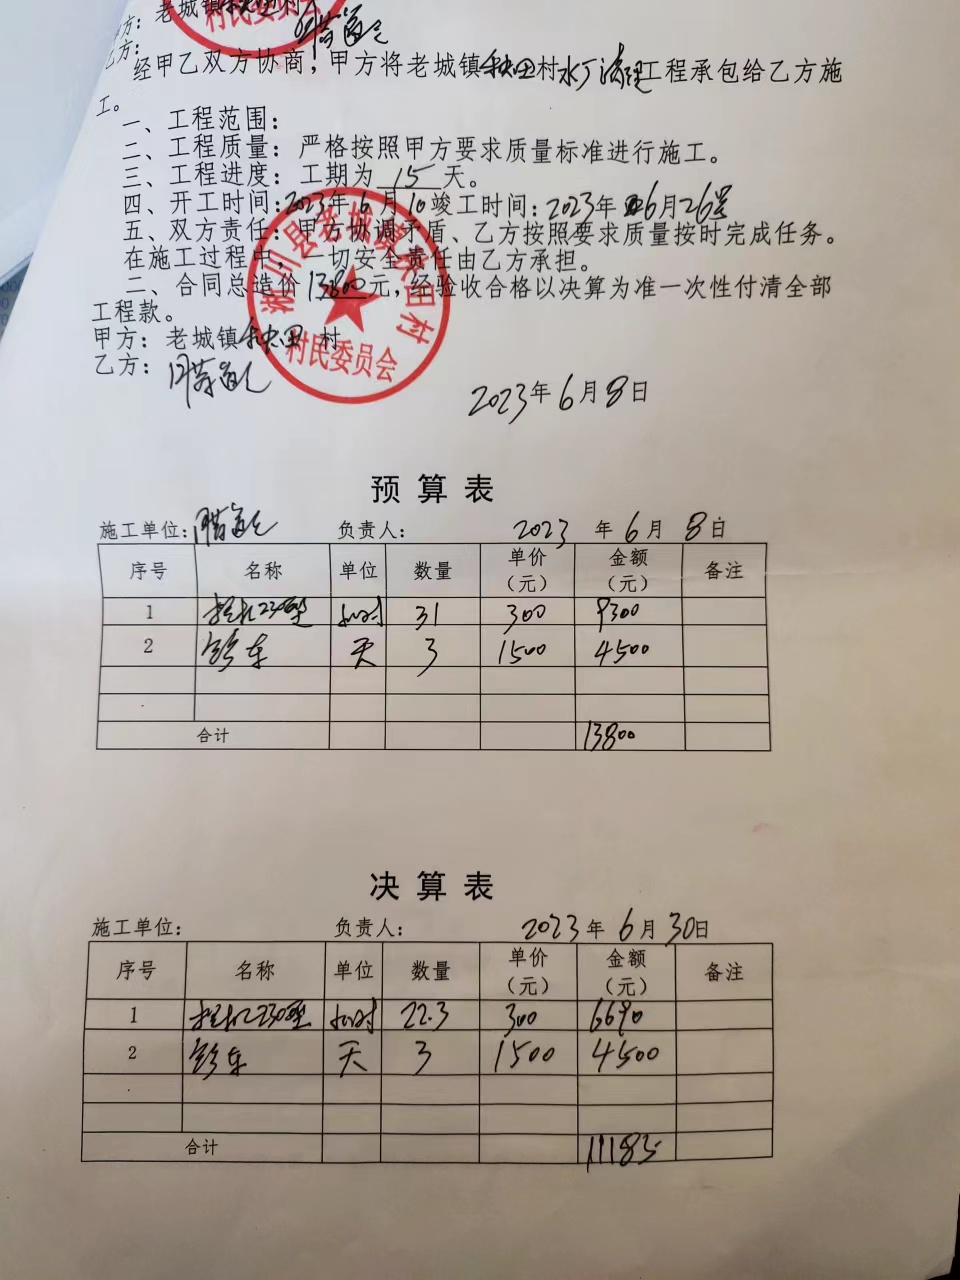 甲方：老城镇秧田村
村民委员会
乙方：
经甲乙双方协商，甲方将老城镇秧田村水厂清理工程承包给乙方施
工。
一、工程范围：
二、工程质量：严格按照甲方要求质量标准进行施工。
三、工程进度：工期为15天。
四、开工时间：2023年6月10竣工时间：2023年6月26号
五、双方责任：甲方协调矛盾、乙方按照要求质量按时完成任务。
在施工过程中，一切安全责任由乙方承担。
二、合同总造价13800元，经验收合格以决算为准一次性付清全部
工程款。
甲方：老城镇秧田村
乙方：
淅川县老城镇秧田村
村民委员会
2023年6月8日
预算表
施工单位： 负责人： 2023年6月8日
序号 名称 单位 数量 单价（元） 金额（元） 备注
1 挖机230型 小时 31 300 9300
2 铲车 天 3 1500 4500
合计 13800
决算表
施工单位： 负责人： 2023年6月30日
序号 名称 单位 数量 单价（元） 金额（元） 备注
1 挖机230型 小时 22.3 300 6690
2 铲车 天 3 1500 4500
合计 11185